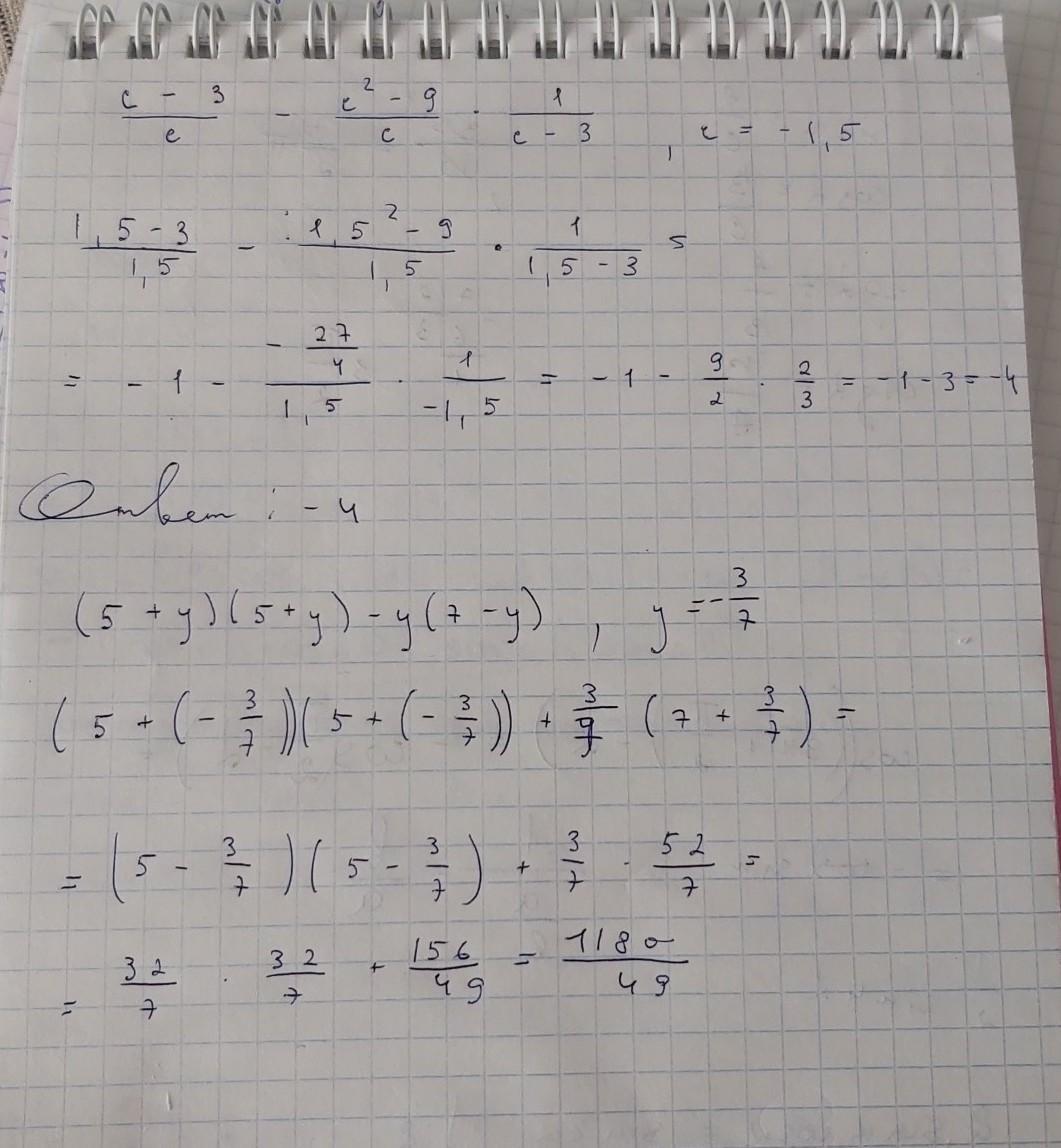 (c - 3)/c - (c² - 9)/c · 1/(c - 3) , c = -1,5
(1,5 - 3)/(1,5) - (1,5² - 9)/(1,5) · 1/(1,5 - 3) =
= - 1 - (- 27/4)/(1,5) · 1/(-1,5) = - 1 - 9/2 · 2/3 = -1 - 3 = -4
Ответ : - 4
(5 + y)(5 + y) - y(7 - y) , y = - 3/7
(5 + (- 3/7))(5 + (- 3/7)) + 3/7 (7 + 3/7) =
= (5 - 3/7)(5 - 3/7) + 3/7 · 52/7 =
= 32/7 · 32/7 + 156/49 = 1180/49